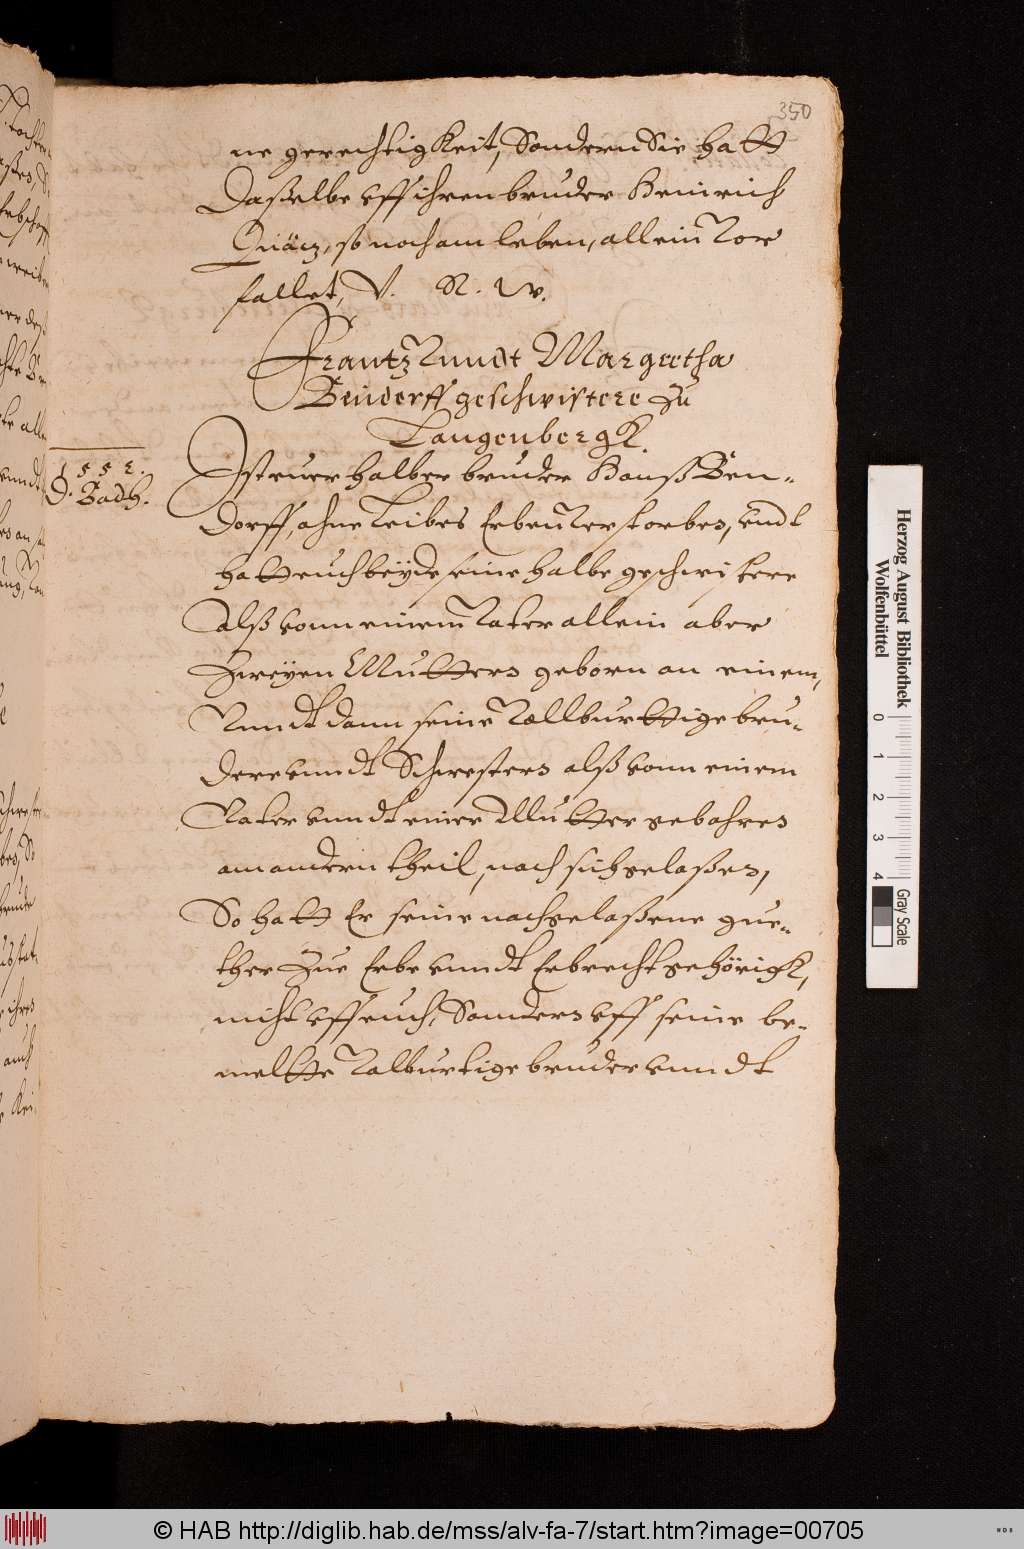 350
ne gerechtigkeit, Sondern Sie hatt
Daßelbe vff ihren bruder Heinrich
Quäcz, so noch am leben, allein Vor
fallet, V. R. W.
Frantz Vundt Margretha
Bendorff geschwistere zu
Langenbergk.
1552.
D. Badh.
Ist euer halber bruder Hanß Ben-
dorff, ahne Leibes Erben Verstorben, vndt
hatt euch beÿde seine halbe geschwistere
alß vonn einem Vater allein aber
Zweÿen Muttern geborn an einem,
Vundt dann seine Vollburttige bru-
dere vnndt Schwestern alß vonn einem
Vater vnndt einer Mutter gebohren
am andern theil, nach sich gelaßen,
So hatt Er seine nachgelaßene gue-
ther Zue Erbe vnndt Erbrecht gehörigk,
nicht vff euch, Sondern vff seine be-
melte Volburtige bruder vnndt
Herzog August Bibliothek
Wolfenbüttel
0 1 2 3 4
Gray Scale
© HAB http://diglib.hab.de/mss/alv-fa-7/start.htm?image=00705